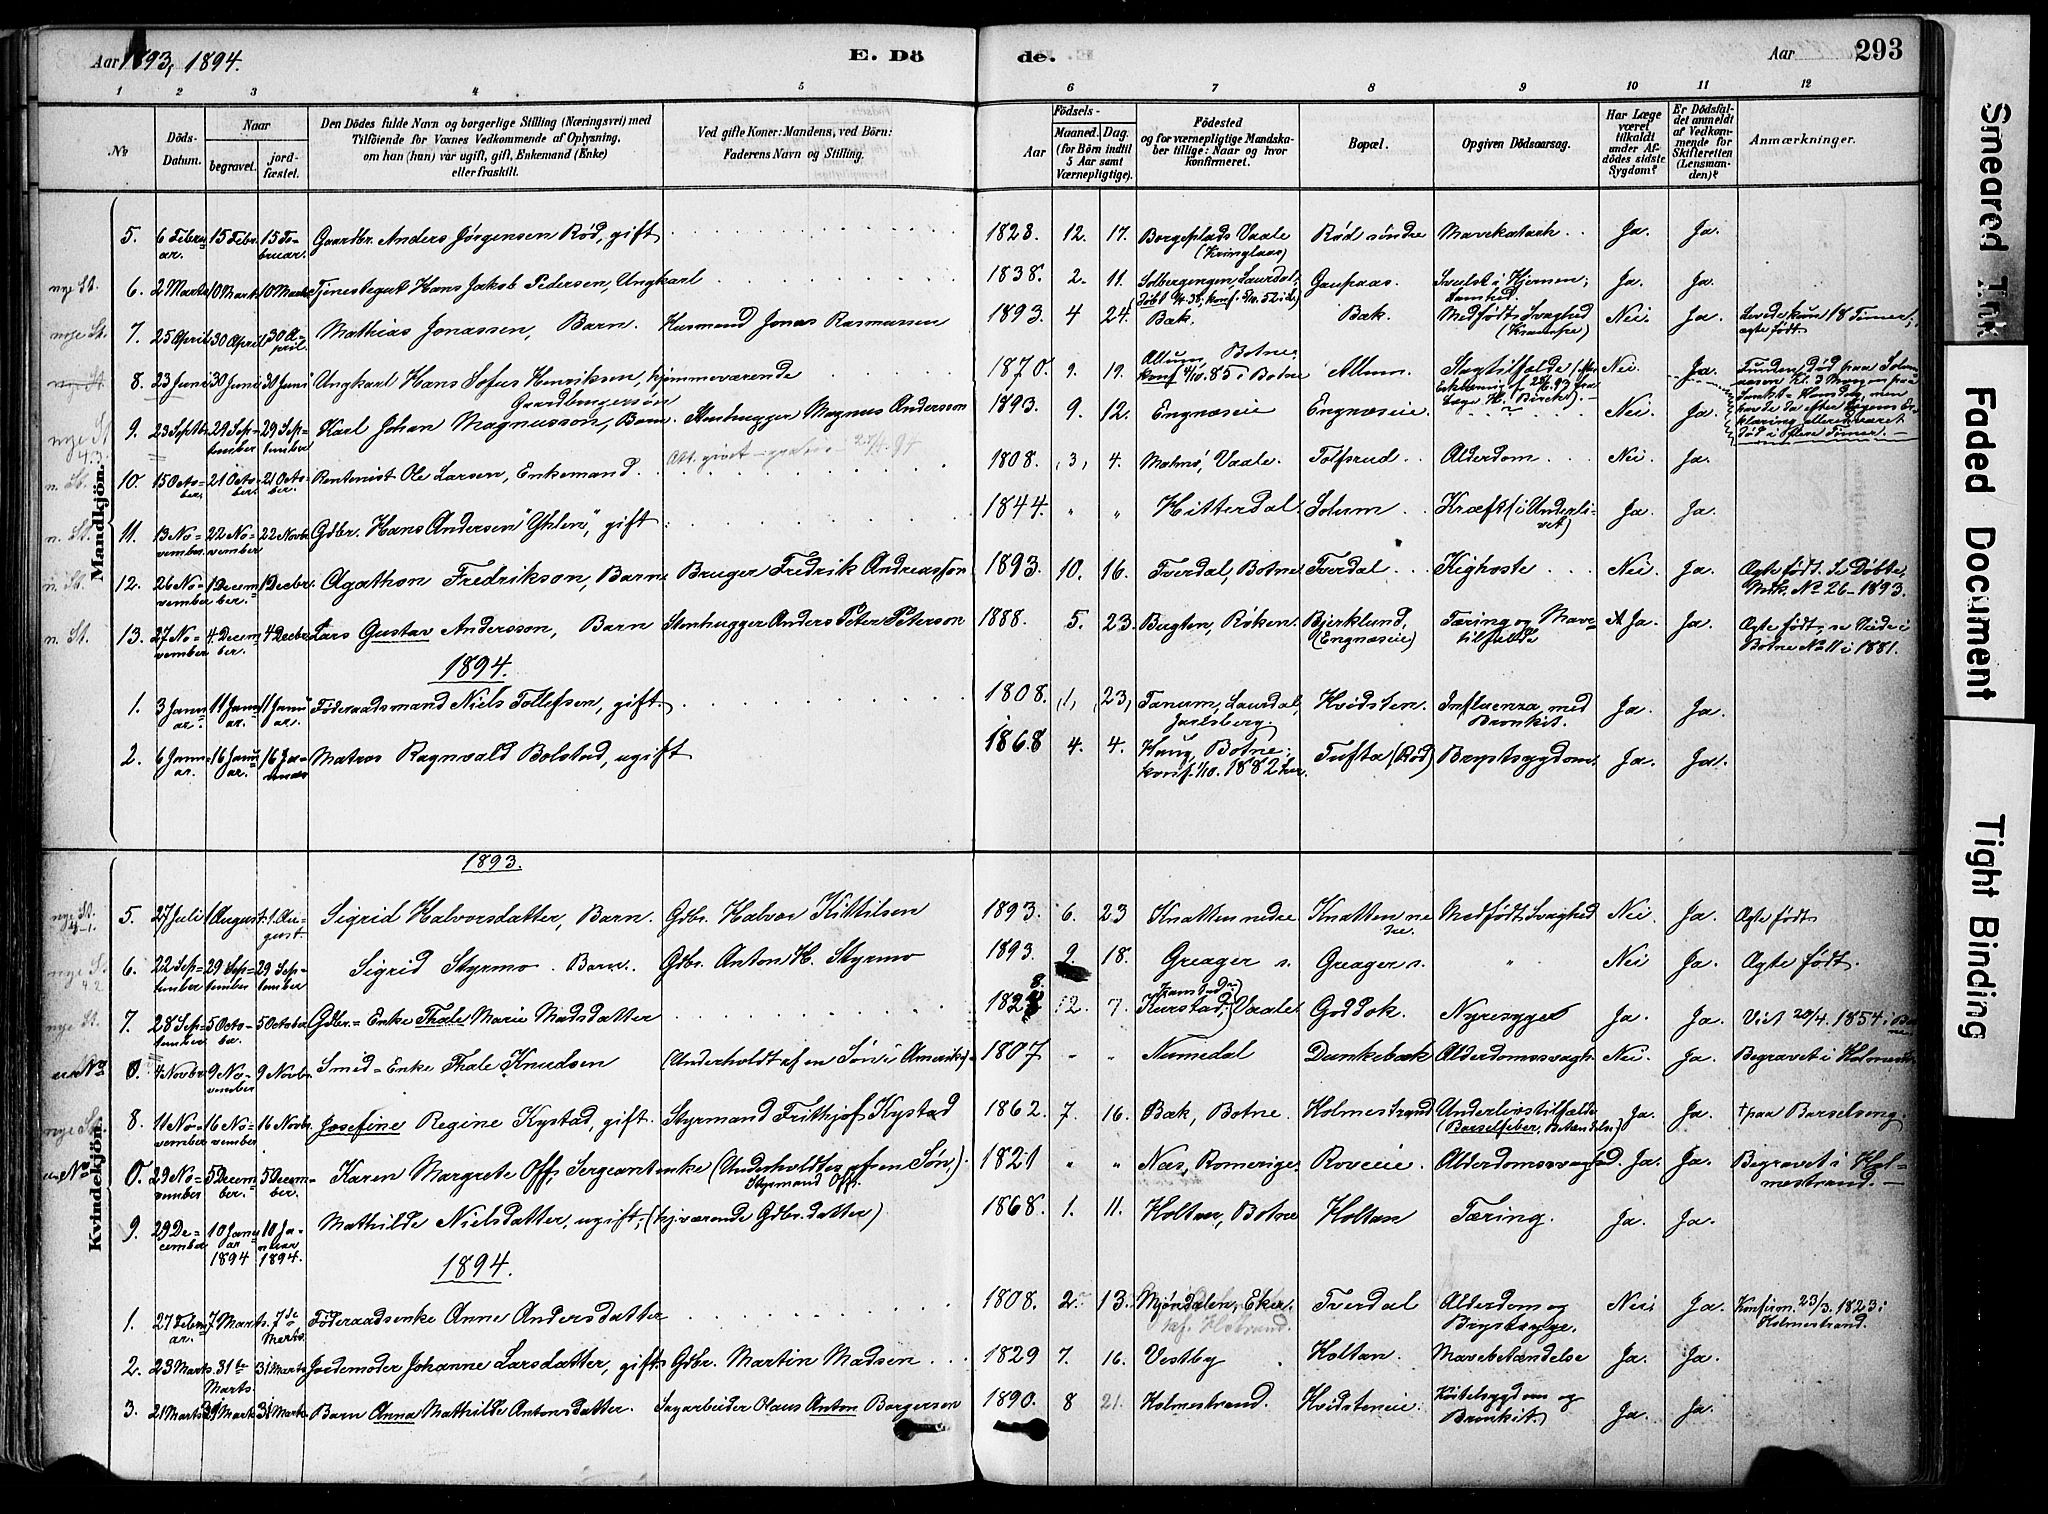 Aar 1893, 1894.
E. Dö
de.
Aar
293
1 2 3 4 5 6 7 8 9 10 11 12
No
Döds-Datum.
Naar
begravet.
jord-fæstet.
Den Dödes fulde Navn og borgerlige Stilling (Næringsvei) med
Tilföiende for Voxnes Vedkommende af Oplysning,
om han (hun) var ugift, gift, Enkemand (Enke)
eller fraskilt.
Ved gifte Koner: Mandens, ved Börn:
Faderens Navn og Stilling.
Födsels-
Aar
Maaned. Dag.
(for Börn indtil
5 Aar samt
Værnepligtige).
Födested
og for værnepligtige Mandska-
ber tillige: Naar og hvor
konfirmeret.
Bopæl.
Opgiven Dödsaarsag.
Har Læge
været
tilkaldt
under Af-
dödes sidste
Sygdom?
Er Dödsfal-
det anmeldt
af Vedkom-
mende for
Skifteretten
(Lensman-
den)?
Anmærkninger.
Mandkjön.
5. 6 Februar. 15 Febr. 15 Februar. Gaardbr. Anders Jörgensen Rød, gift 1828. 12. 17. Borgeplads Vaale (Kringlaas) Rød søndre Mavekatarh Ja. Ja.
nye St. 6. 2 Marts 10 Marts 10 Marts Tjenestegut Hans Jakob Pedersen, Ungkarl 1838. 2. 11. Solbergengen, Laurdal, Gaupaas. Svulst i Hjernen, Ja. Ja.
nye St. 7. 25 April 30 April 30 April. Mathias Jonassen, Barn. Husmand Jonas Rasmussen 1893. 4 24. Bak. Bak. Medfødt Svaghed (Krampe) Nei. Ja. Levede kun 18 Timer, ægte født
nye St. 8. 23 Juni 30 Juni 30 Juni Ungkarl Hans Sofus Henriksen, hjemmeværende Gaardbrugersøn 1870. 9. 19. Allum, Botne. konf. 4/10. 85 i Botne Allum. Slagtilfælde Nei. Ja. Funden død paa
9. 23 Septbr. 29 September 29 September Karl Johan Magnusson, Barn. Stenhugger Magnus Andersson 1893. 9. 12. Engnæseie Engnæseie. " Nei. Ja.
n. St. 10. 15 October. 21 October 21 October. Rentenist Ole Larsen, Enkemand. 1808. 3, 4. Malmö, Vaale. Tolfsrud. Alderdom. Nei. Ja.
n. St. 11. 13 November. 22 November 22 Novbr. Gdbr. Hans Andersen "Yhlen," gift 1844. " " Hitterdal. Solum. Kræft (i Underlivet) Ja. Ja.
n. St. 12. 26 November 1 December. 1 Decbr. Agathon Fredrikson, Barn Bruger Fredrik Andreasson 1893. 10. 16. Tverdal, Botne Tverdal Kighoste Nei Ja. Ægte født. Se Døbte, Mk. No 26 – 1893.
n. St. 13. 27 November 4 December. 4 Decbr. Lars Gustav Andersson, Barn Stenhugger Anders Peter Peterson 1888. 5. 23. Bugten, Røken. Bjerklund, (Engnæseie) Tæring og Mavetilfælde Ja. Ja. Ægte født, se Viede i Botne No 11 i 1881.
1894.
1. 3 Januar. 11 Januar. 11 Januar. Føderaadsmand Niels Tollefsen, gift. 1808. 1, 23, Fanum, Laurdal, Jarlsberg. Hvidsten. Influenza med Bronkit. Ja. Ja.
2. 6 Januar. 16 Januar. 16 Januar Matros Ragnvald Bolstad, ugift 1868 4. 4. Haug, Botne; konf. 1/10. 1882 her. Tufta (Rød) Brystsygdom. Ja. Ja.
Kvindekjön.
1893.
nye St. 5. 27 Juli 1 August. 1 August. Sigrid Halvorsdatter, Barn. Gdbr. Halvor Kittilsen 1893. 6. 23 Knatten nedre Knatten nedre. Medfødt Svaghed Nei Ja. Ægte født
nye St. 6. 22 September 29 September 29 September Sigrid Styrmo. Barn. Gdbr. Anton H. Styrmo 1893. 9. 18. Greager s. Greager s. " Nei Ja. Ægte født.
nye St. 7. 28 September 5 October. 5 October Gdbr.-Enke Thale Marie Madsdatter 1828 12. 7. Kurstad, Vaale. Goddok. Nyresyge Ja. Ja. Viet 20/4. 1854 i Botne
0. 4 Novbr. 9 November 9 Novbr. Smed-Enke Thale Knudsen (Underholdt af en Søn i Amerika) 1807 " " Numedal Dunkebæk Alderdomssvagh. Nei. Ja. Begravet i Holmestr.
nye St. 8. 11 November 16 November 16 Novbr. Josefine Regine Kystad, gift. Styrmand Frithjof Kystad 1862. 7. 16. Bak, Botne. Holmestrand Underlivstilfælde (Barselfeber, Betændelse) Ja. Ja. † paa Barselseng.
0. 29 November 5 December. 5 December. Karen Margrete Off, Sergeantenke (Underholdtes af en Søn, Styrmand Off.) 1821 " " Næs, Romerige. Roveie. Alderdomssvaghed. Ja. Ja. Begravet i Holmestrand.
9. 29 December 10 Januar 1894 10 Januar 1894. Mathilde Nielsdatter, ugift, (hjværende Gdbr.datter) 1868. 1. 11. Holtan, Botne Holtan Tæring. Ja. Ja.
1894.
1. 27 Februar. 7 Marts. 7de Marts. Føderaadsenke Anne Andersdatter 1808. 2. 13. Mjøndalen, Eker. Tverdal Alderdom og Brystsyge. Nei. Ja. Konfirm. 23/3. 1823 i Holmestrand.
2. 23 Marts 31te Marts. 31 Marts Jordemoder Johanne Larsdatter, gift Gdbr. Martin Madsen 1829 7. 16. Vestby Holtan. Mavebetændelse Ja. Ja.
3. 21 Marts 31 Marts 31 Marts Barn Anna Mathilde Antonsdatter. Sagarbeider Olaus Anton Borgersen 1890. 8 21. Holmestrand. Hvidsteneie. Kirtelsygdom og Bronkit. Ja. Ja.
Smeared Ink
Faded Document
Tight Binding